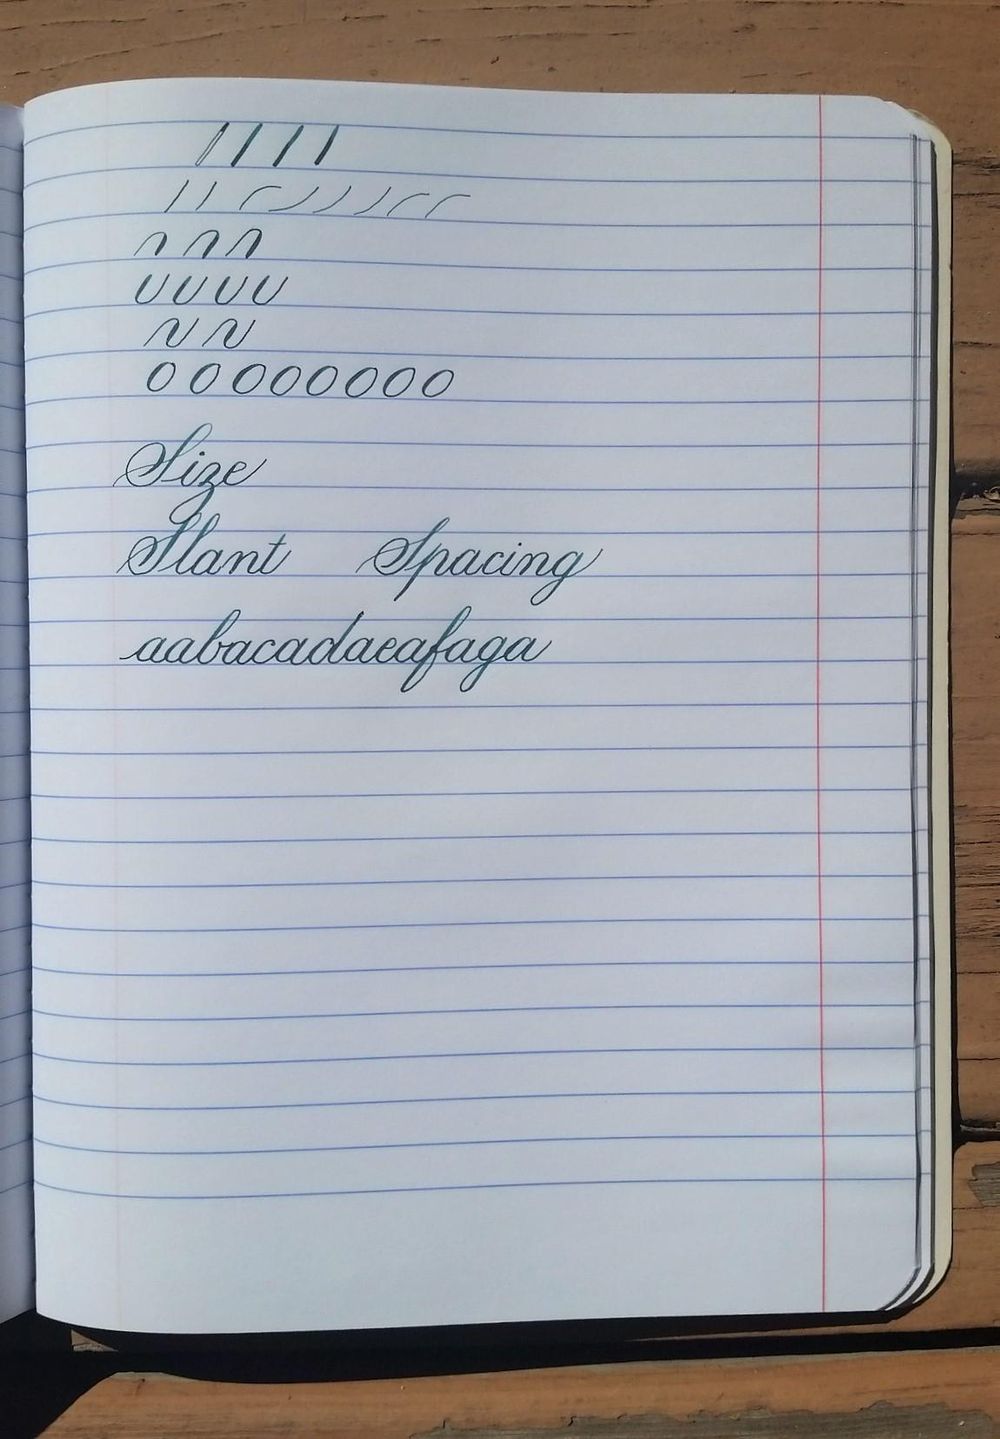 Size
Slant Spacing
aabacadaeafaga